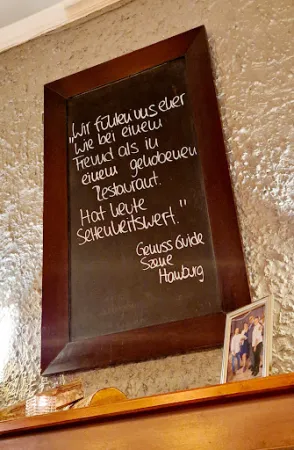 „Wir fühlen uns eher
wie bei einem
Freund als in
einem gehobenen
Restaurant.
Hat heute
Seltenheitswert."
Genuss Guide
Szene
Hamburg